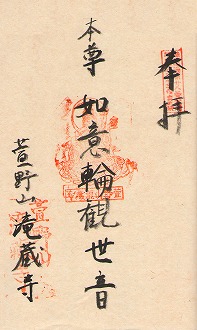 奉拝
本尊
如意輪観世音
萱野山滝蔵寺